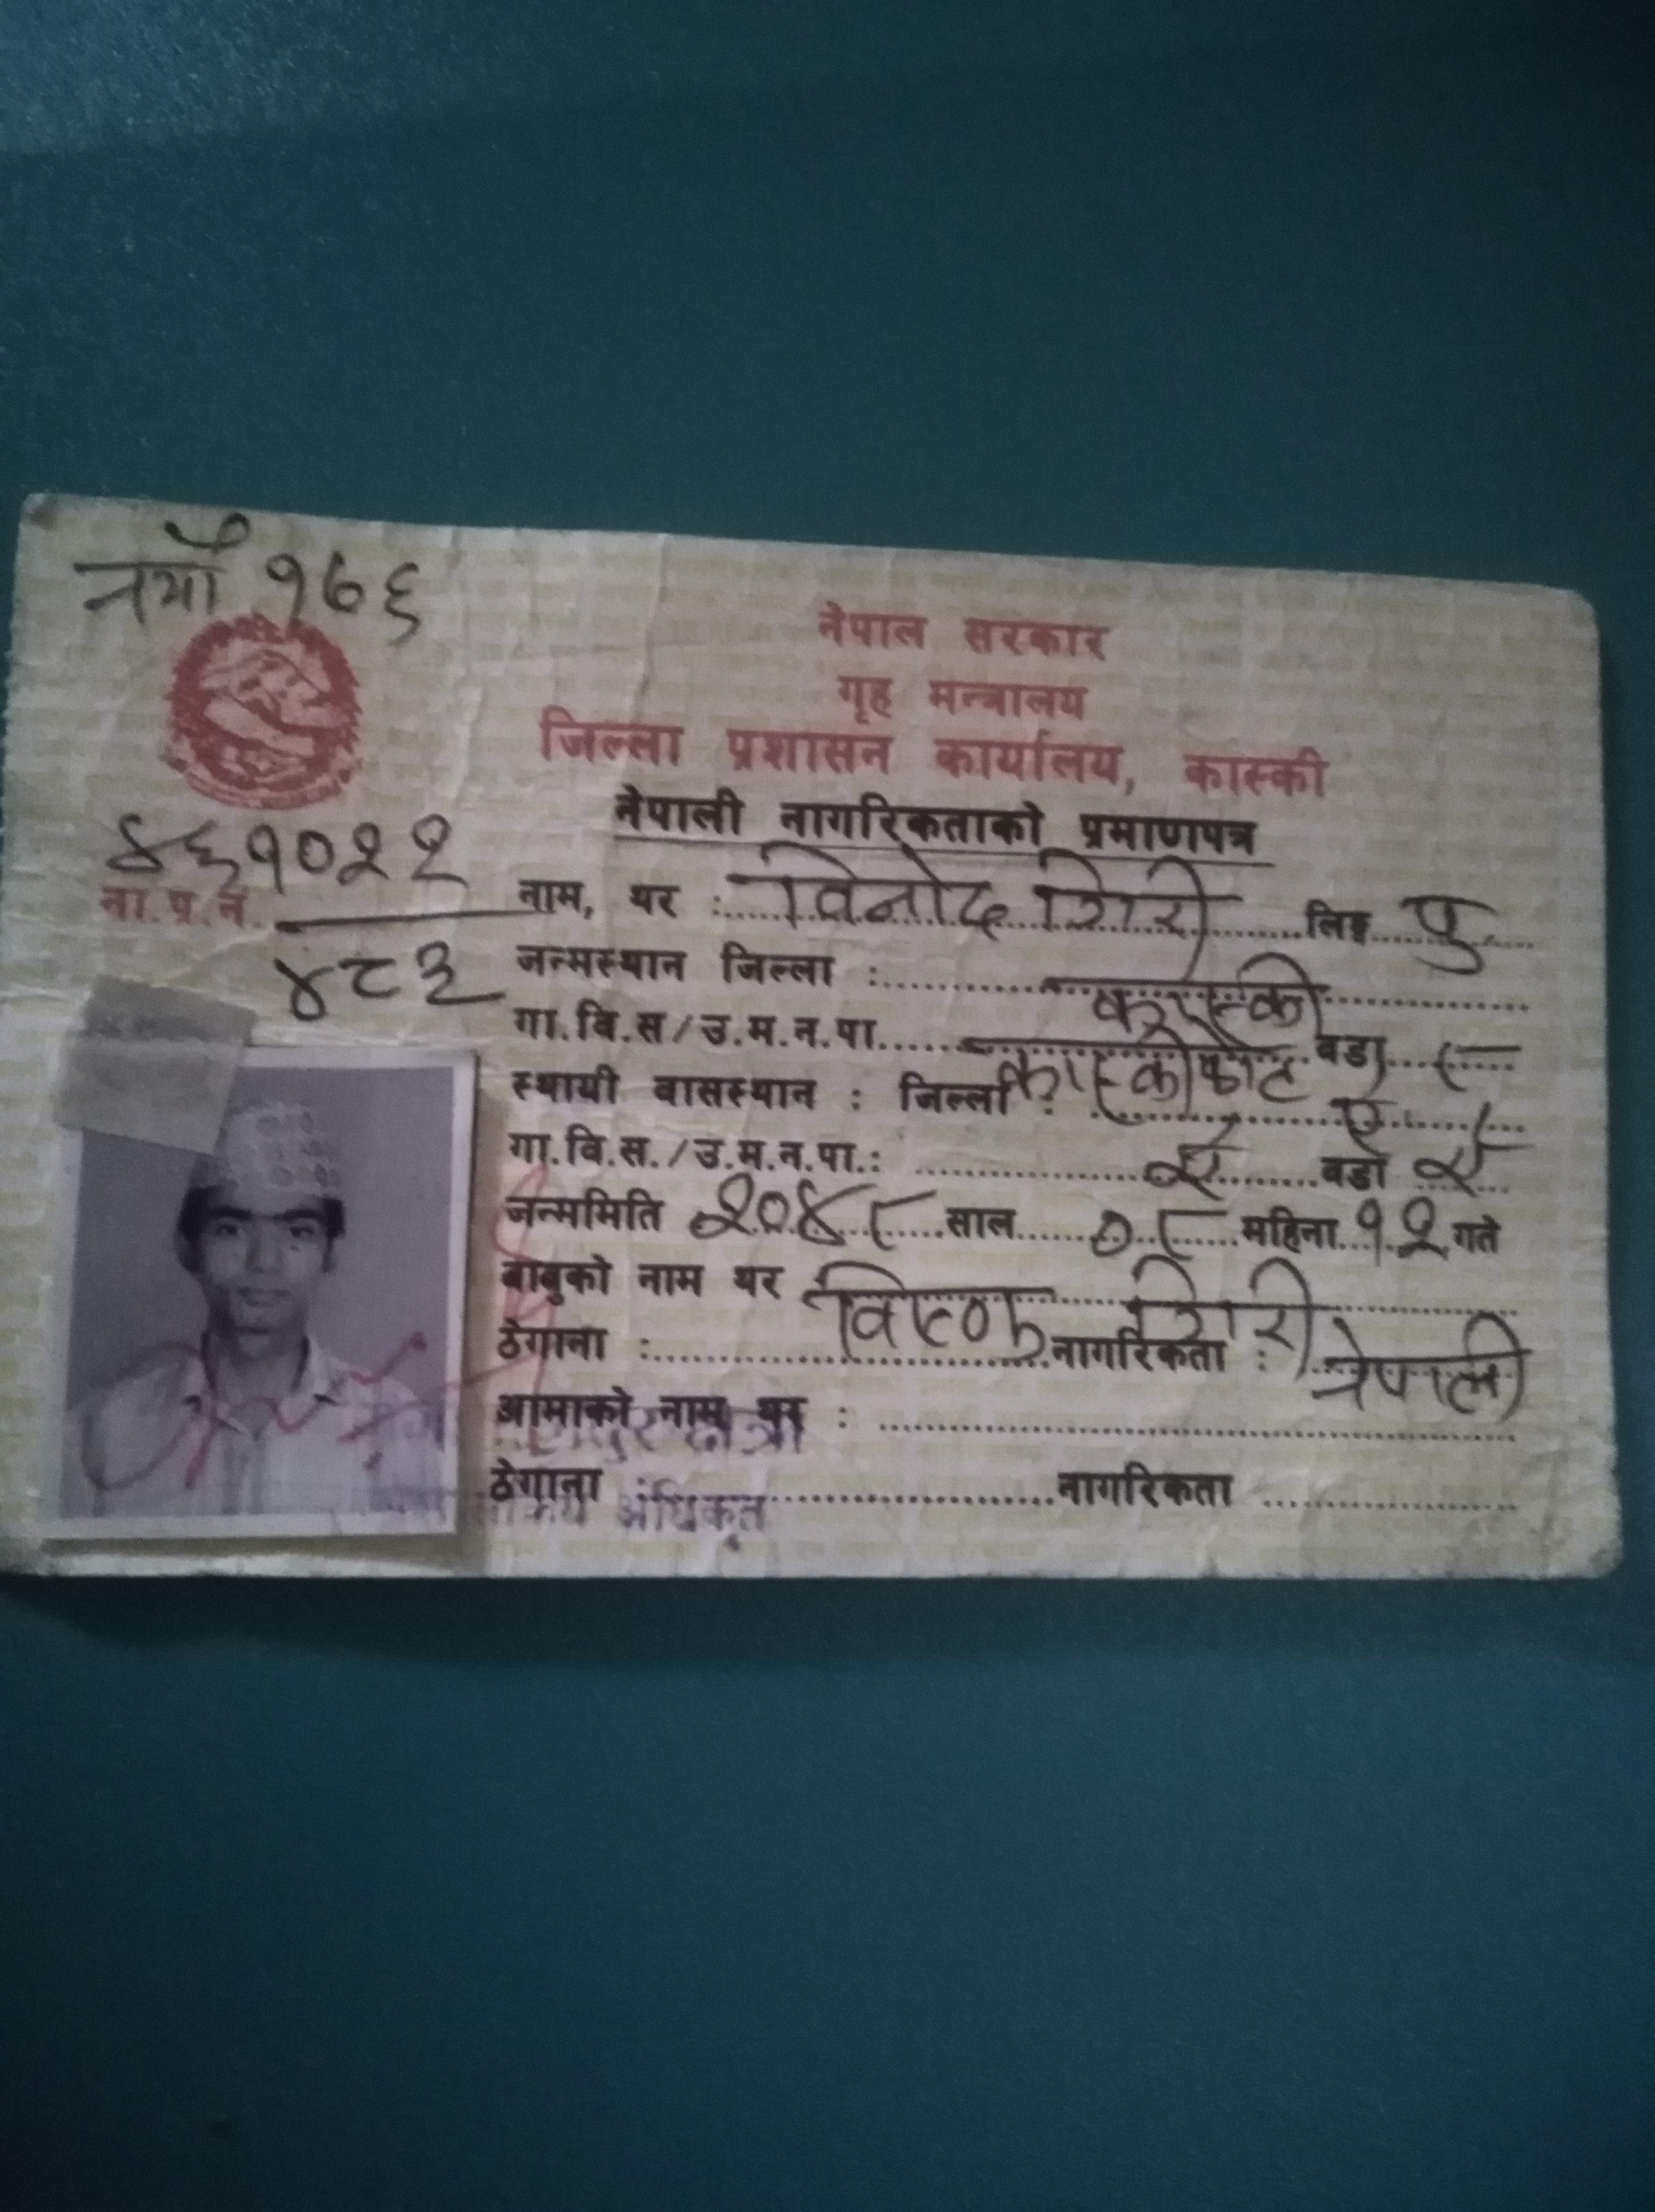 नयाँ १७६
नेपाल सरकार
गृह मन्त्रालय
जिल्ला प्रशासन कार्यालय, कास्की
नेपाली नागरिकताको प्रमाणपत्र
४६१०२२
ना.प्र.नं.
४८३
नाम, थर : विनोद गिरी लिङ्ग पु.
जन्मस्थान जिल्ला : कास्की
गा.वि.स/उ.म.न.पा. कास्कीकोट वडा ८
स्थायी वासस्थान : जिल्ला :
गा.वि.स./उ.म.न.पा.: वडा
जन्ममिति २०४८ साल ०८ महिना १२ गते
बाबुको नाम थर विष्णु गिरी
ठेगाना : नागरिकता : नेपाली
आमाको नाम थर :
ठेगाना : नागरिकता
अधिकृत